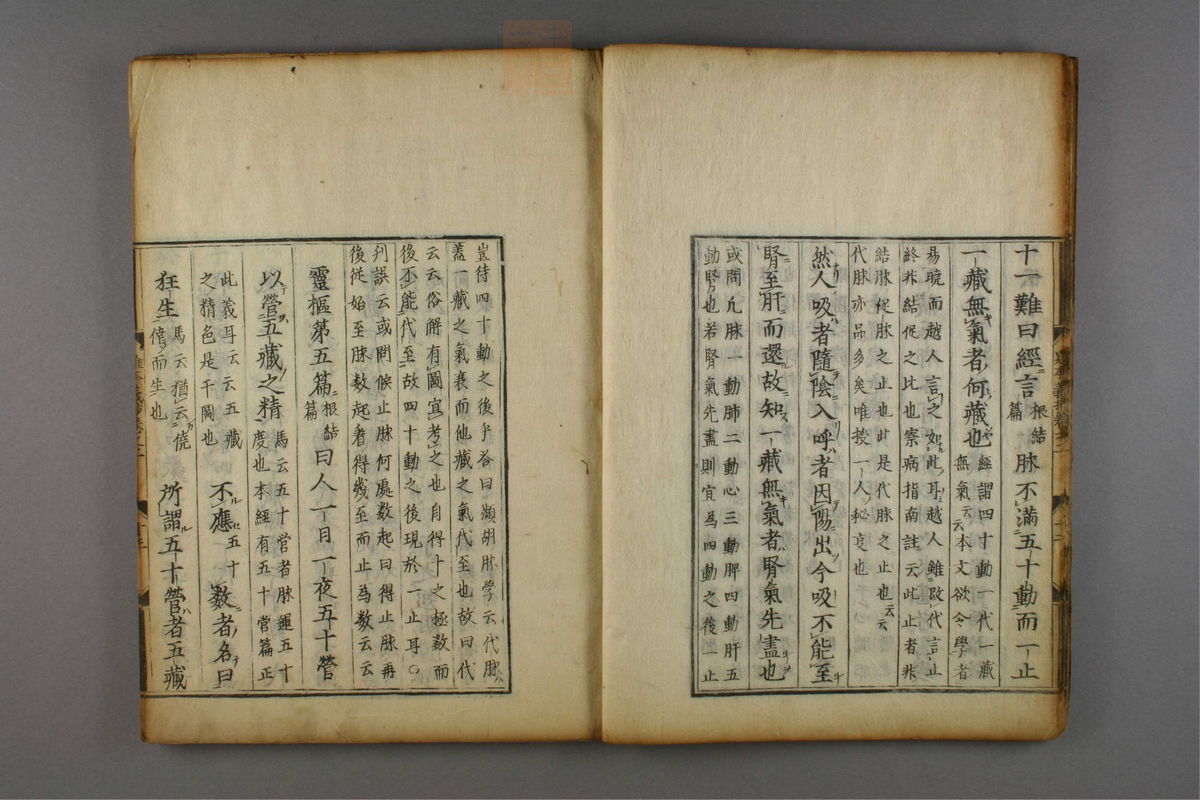 十一難曰經言根結篇脉不滿五十動而一止
一藏無氣者何藏也經謂四十動一代一藏
無氣云云本文欲令學者
易曉而越人言之如此耳越人雖改代言止
終非結促之比也察病指南註云此止者非
結脉促脉之止也此是代脉之止也云云
代脉亦品多矣唯授一人秘支也
然人吸者隨陰入呼者因陽出今吸不能至
腎至肝而還故知一藏無氣者腎氣先盡也
或問凡脉一動肺二動心三動脾四動肝五
動腎也若腎氣先盡則宜為四動之後一止
豈待四十動之後乎答曰瀕胡脉學云代脉
蓋一藏之氣衰而他藏之氣代至也故曰代
云云俗解有圖宜考之也自得十之極数而
後不能代至故四十動之後現於一止耳○
刋誤云或問候止脉何處数起曰得止脉再
後従始至脉数起看得幾至而止為数云云
靈樞第五篇根結篇曰人一日一夜五十營
以營五藏之精馬云五十営者脉運五十
度也本經有五十営篇正
此義耳云云五藏
之精色是干圖也
不應五十数者名曰
狂生馬云猶云僥
倖而生也
所謂五十營者五藏